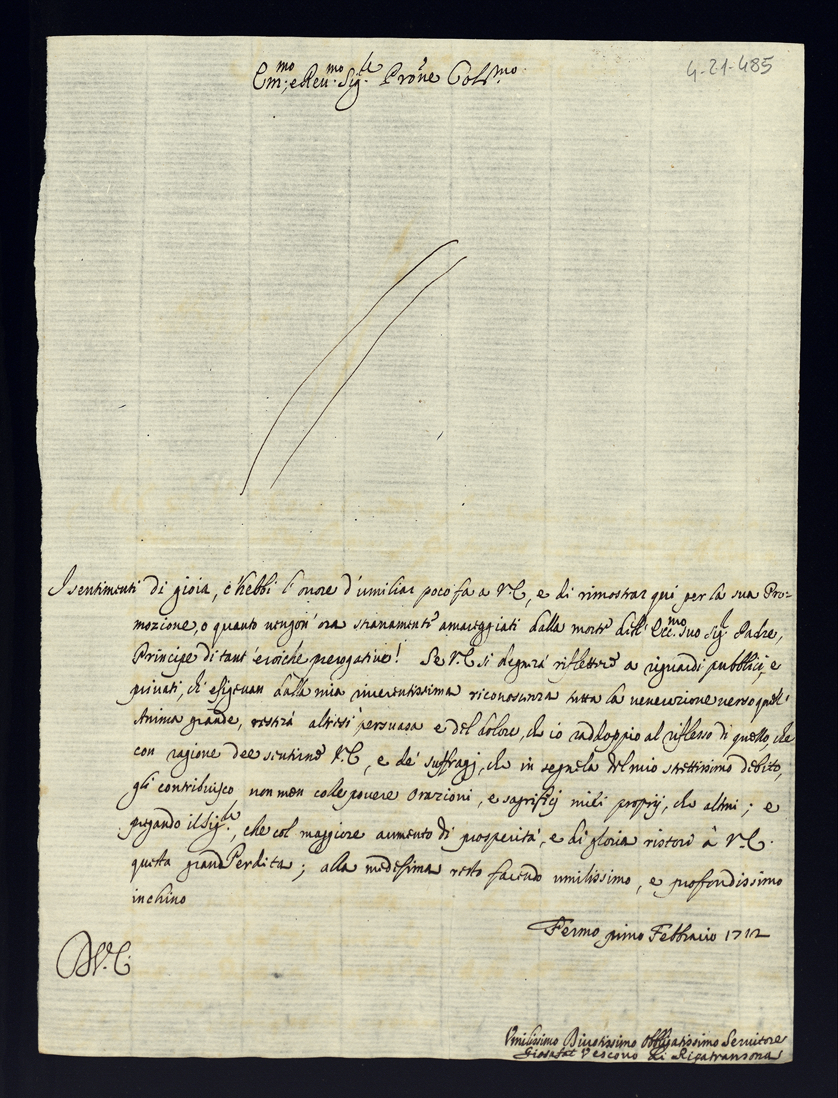 4-21-485
Em:mo e Reu:mo Sig:re Pro'ne Col:mo
I sentimenti di gioia, c'hebbi l'onore d'umiliar poco fa a V.E., e di rimostrar qui per la sua Pro=
mozione, o quanto vengon'ora stranamente amareggiati dalla morte dell'Ecc:mo suo Sig:r Padre,
Principe di tant'eroiche prerogative! Se V.E. si degnerà riflettere a riguardi pubblici, e
privati, ch'esigevan dalla mia riverentissima riconoscenza tutta la venerazione verso quell'
Anima grande, resterà altresì persuasa e del dolore, che io raddoppio al riflesso di quello, che
con ragione dee sentirne V.E., e de' suffragj, che in segnela del mio strettissimo debito,
gli contribuisco non men colle povere orazioni, e sagrifizj miei proprj, che altrui; e
pregando il Sig:re, che col maggiore aumento di prosperità, e di gloria ristori à V.E.
questa grand Perdita; alla medesima resto facendo umilissimo, e profondissimo
inchino
Fermo primo Febbraio 1712
D.V.E.
Vmilissimo Diuotissimo Obbligatissimo Seruitore
Giosafat Vescouo di Ripatransona